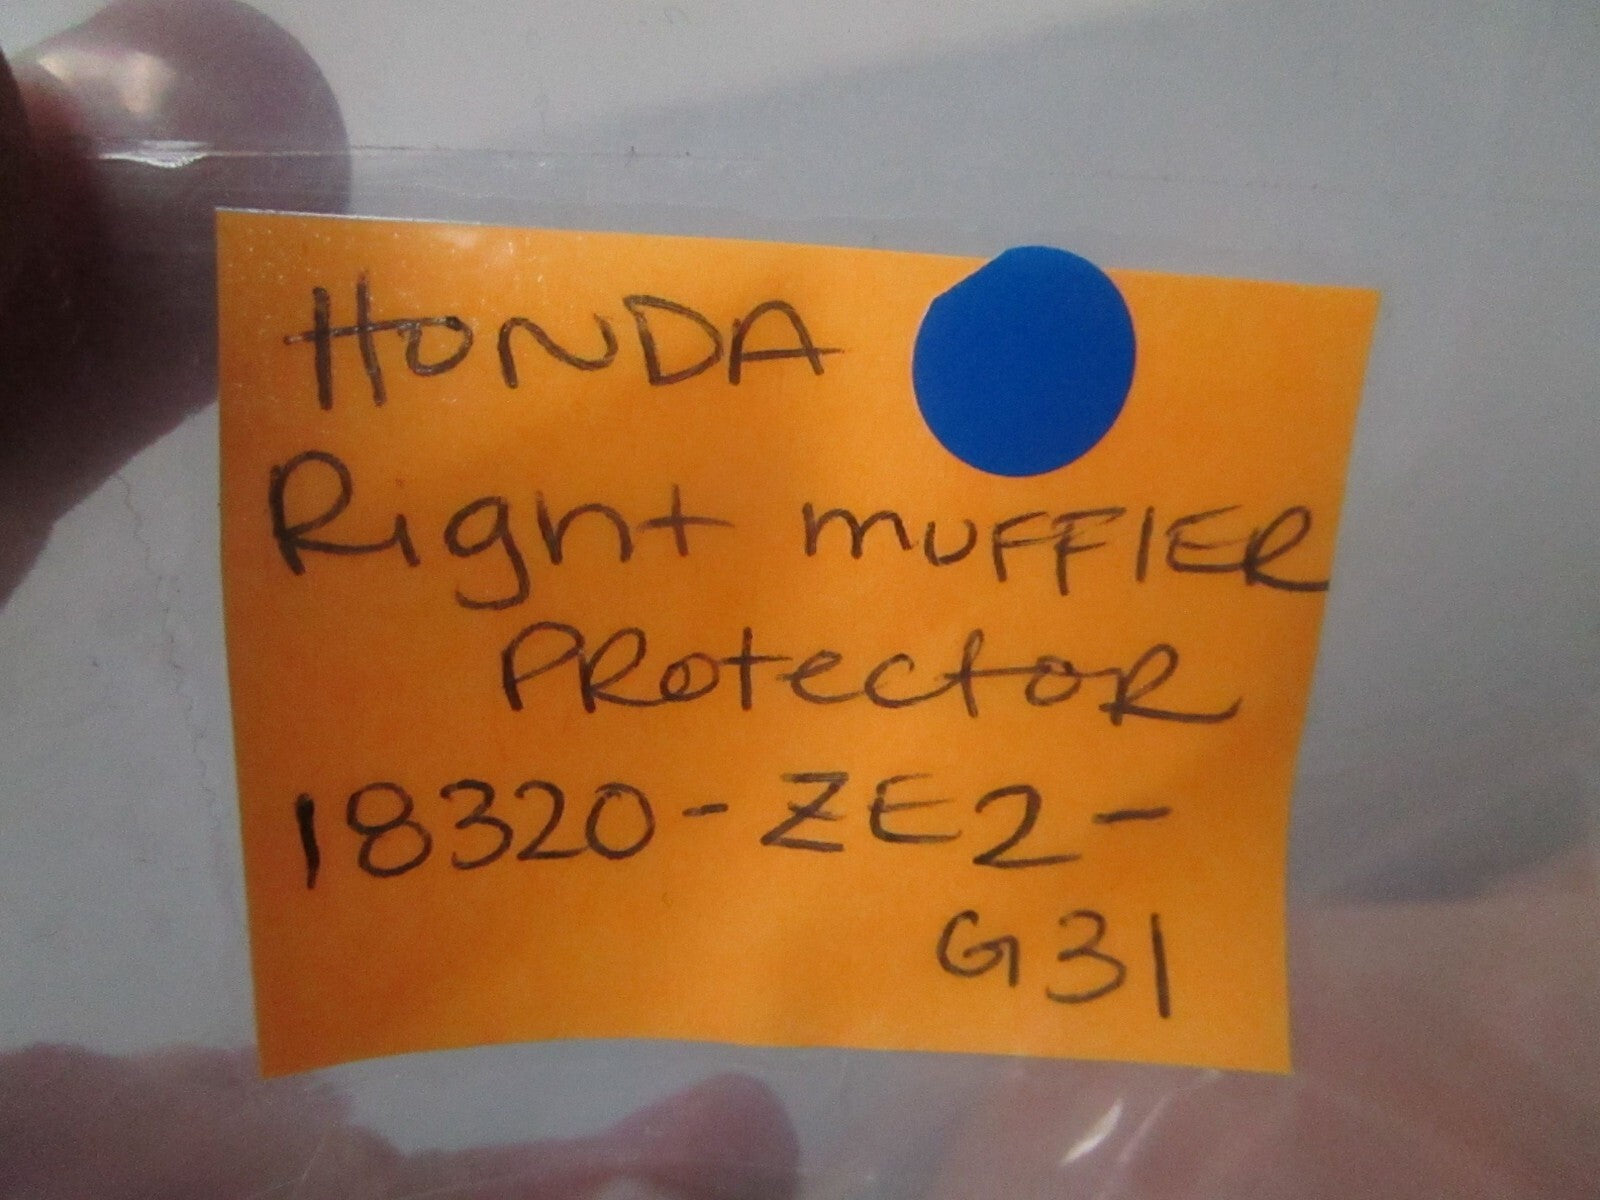 HONDA
Right MUFFlER
PRotectoR
18320-ZE2-
G31